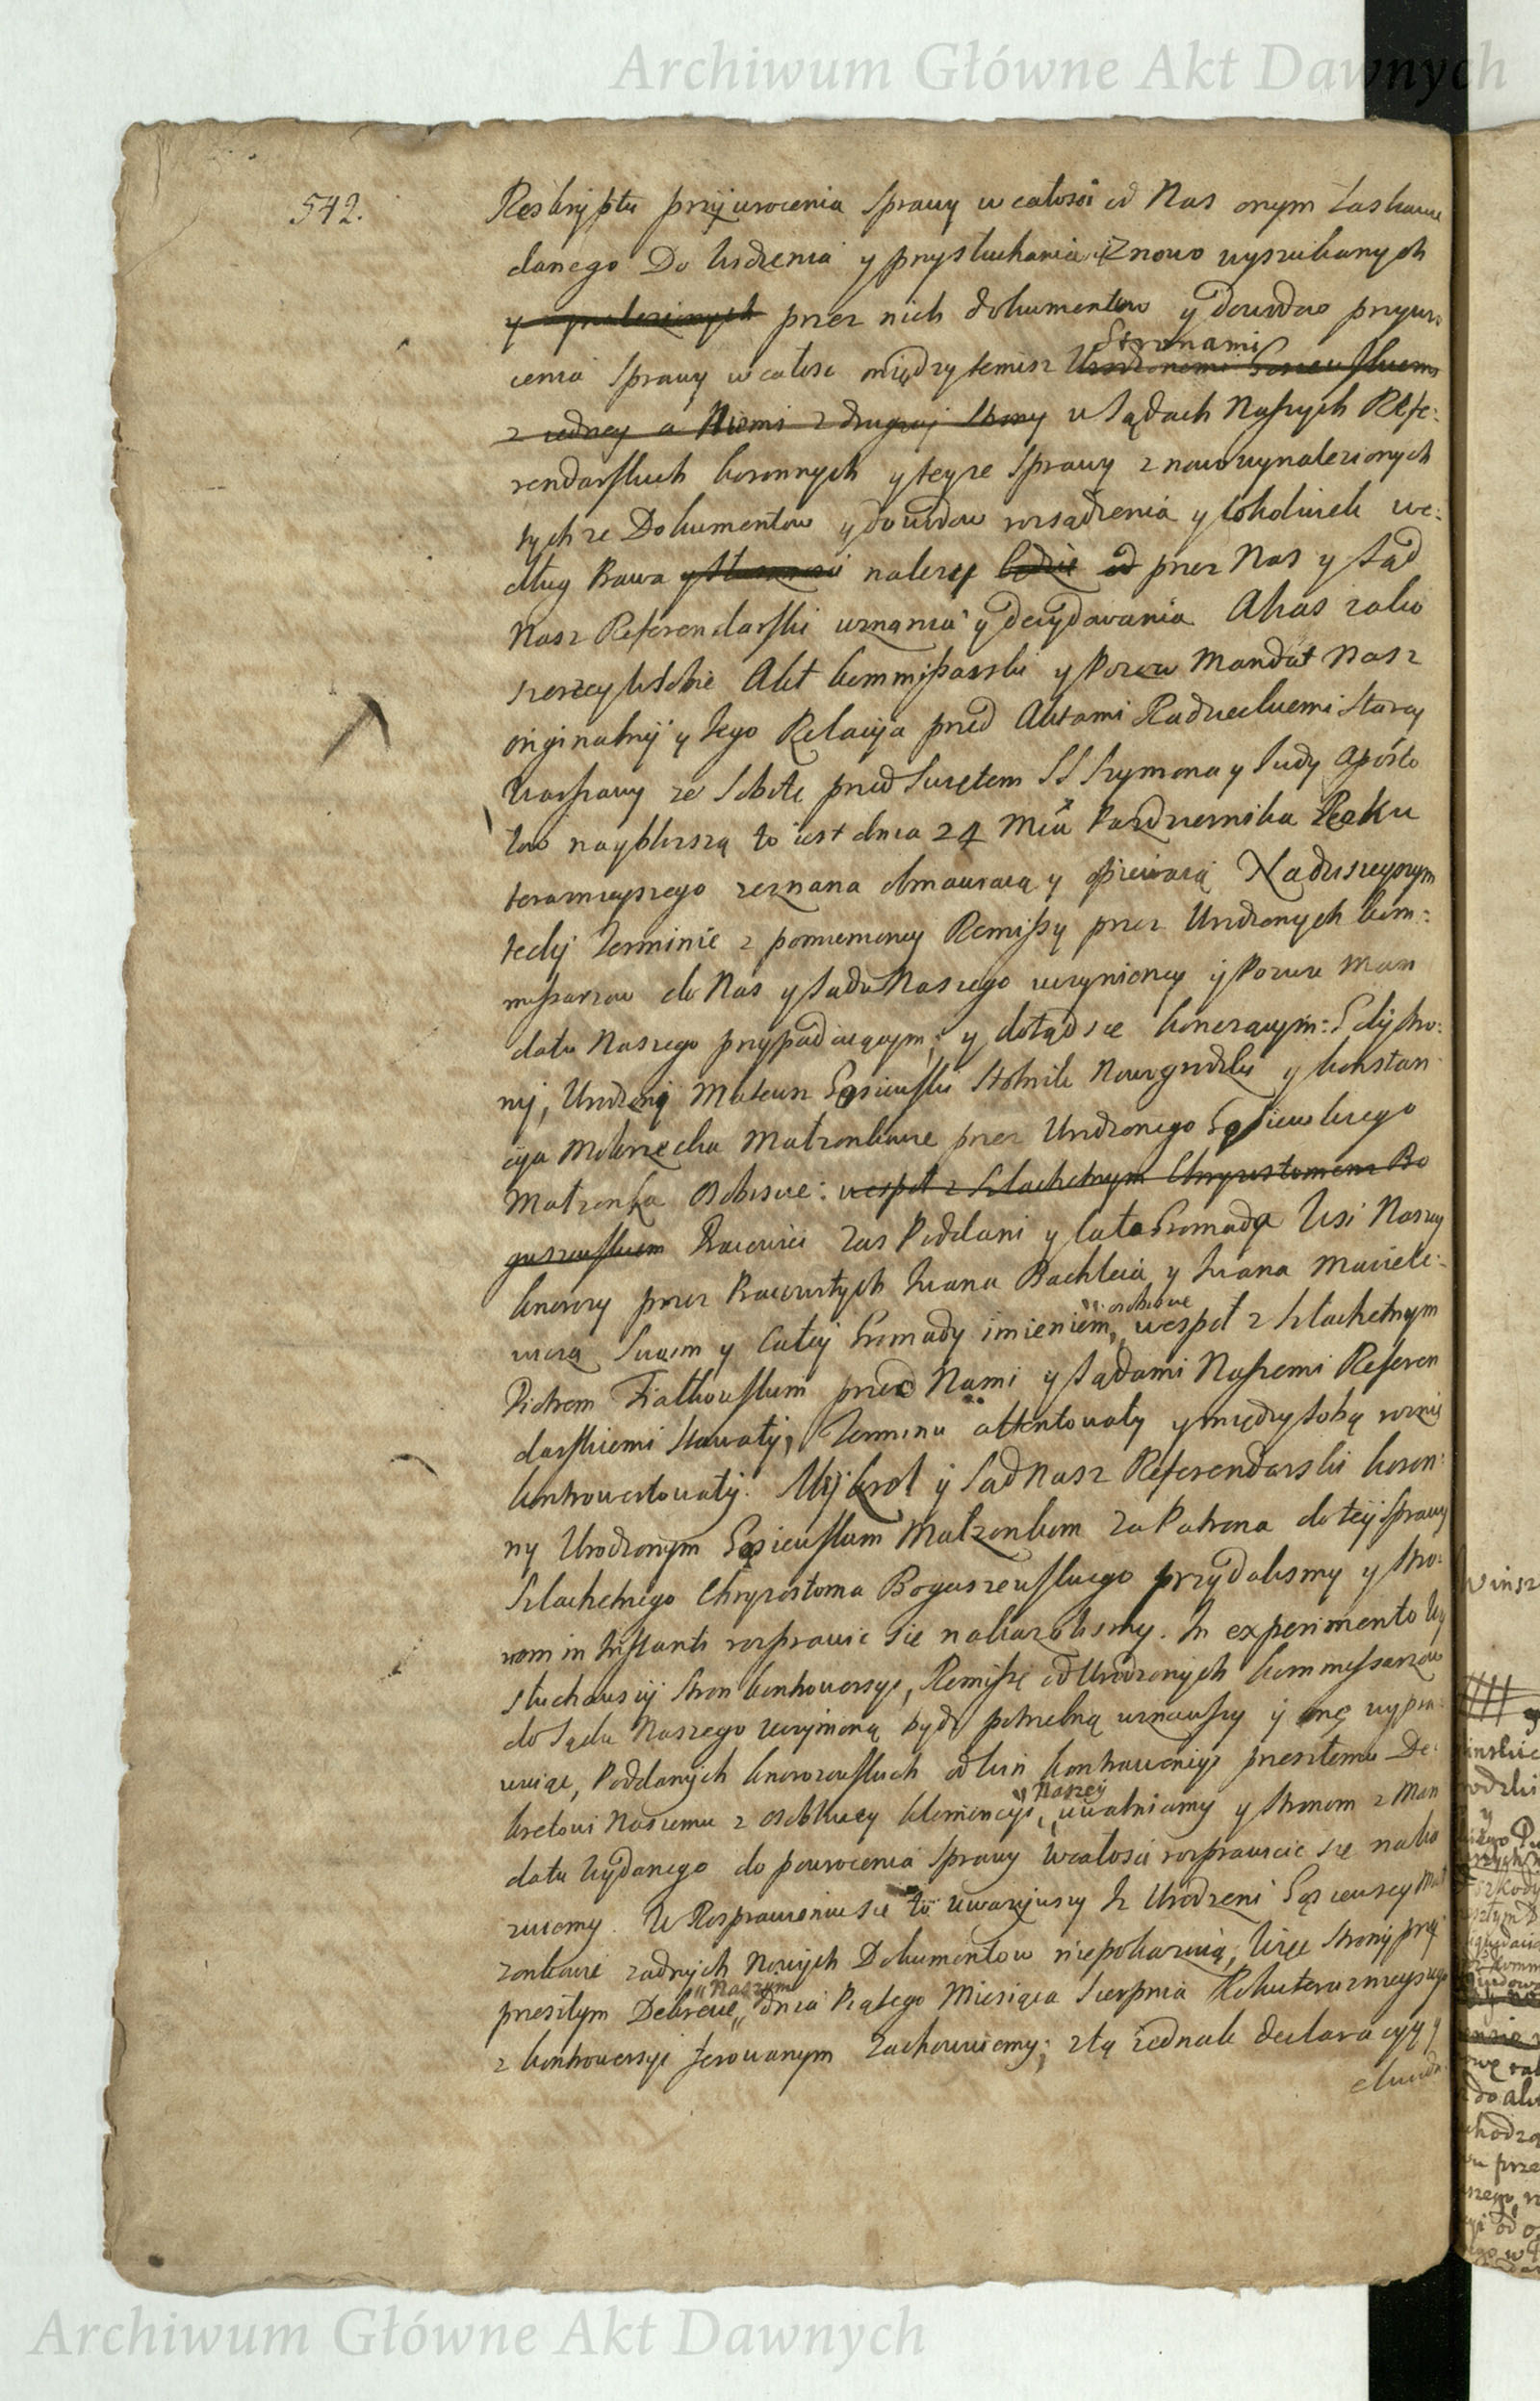 Archiwum Główne Akt Dawnych
542.
Reskryptu przywrocenia Sprawy w całosci od Nas onym łaskawie
danego Do widzenia y przysłuchania się znowo wyszukanych
y znalezionych przez nich dokumentow y dowodow przywro
cenia Sprawy w całosc między temisz Stronami Urodzonemi Gosiewskiemi
z iedney a Niemi z drugiej Strony w Sądach Naszych Refe:
rendarskich koronnych y teyze Sprawy z nowo wynalezionych
tychze Dokumentow y dowodow rozsądzenia y cokolwiek we:
dług Prawa y Słusznosci nalezy będzie od przez Nas y Sąd
Nasz Referendarski uznania y decydowania Akas zako
szerzey w sobie Akt kommissarski y Pozew Mandat Nasz
originalny y Jego Relacya przed Aktami Radzieckiemi Starey
Warszawy ze Sobote przed Swiętem SS Szymona y Judy Aposto
łow naybliszą to iest dnia 24 Mca Pazdziernika Roku
teraznieyszego zeznana obmawiaią y opiewaią Na dzisieyszym
tedy Terminie z pomienioney Remissy przez Urodzonych kom:
missarzow do Nas y Sadu Naszego uczynioney y Pozwu Man
datu Naszego przypadaiącym, y dotąd sie konczącym: Gdy Stro:
ny, Urodzeny Mateusz Gąsiewski Stolnik Nowogrodzki y konstan
cya Mokrzecka Małzonkowie przez Urodzonego Gąsiewskiego
Małzonka Osobiscie: wespoł z Szlachetnym Chryzostomem Bo
guszewskiem Pracowici zas Poddani y cała Gromada Wsi Naszey
knorozy przez Pracowitych Iwana Bachleia y Iwana Maciele:
wicza Swoim y całey Gromady imieniem, osobiscie wespoł z Szlachetnym
Piotrem Fiałkowskim przed Nami y Sądami Naszemi Referen
darskiemi Stawały, Terminu attentowały y między sobą roznie
kontrowertowały. My krol y Sad Nasz Referendarski koron:
ny Urodzonym Gąsiewskim Małzonkom za Patrona do tey Sprawy
Szlachetnego Chryzostoma Boguszewskiego przydalismy y Stro:
nom in Instanti rozprawic sie nakazalismy. In experimento Wy
słuchawszy Stron kontrowersye, Remissę od Urodzonych kommissarzow
do Sądu Naszego uczynioną bydz potrzebną uznawszy y onę wypeł:
niaiąc, Poddanych knorozowskich od win kontrawencyi przeszłemu De:
kretowi Naszemu z osobliwey klemencyi, Naszey uwalniamy y Stronom z Man
datu Wydanego do powrocenia Sprawy Wcałosci rozprawic sie naka
zuiemy. W Rozprawieniu sie to uwazywszy Iz Urodzeni Gąsiewscy Mał
zonkowie zadnych Nowych Dokumentow niepokazuią, Więc Strony przy
przeszłym Dekrecie, Naszym dnia Piątego Miesiąca Sierpnia Roku teraznieyszego
z kontrowersyi ferowanym Zachowuiemy; z tą iednak deklaracyą y
Archiwum Główne Akt Dawnych